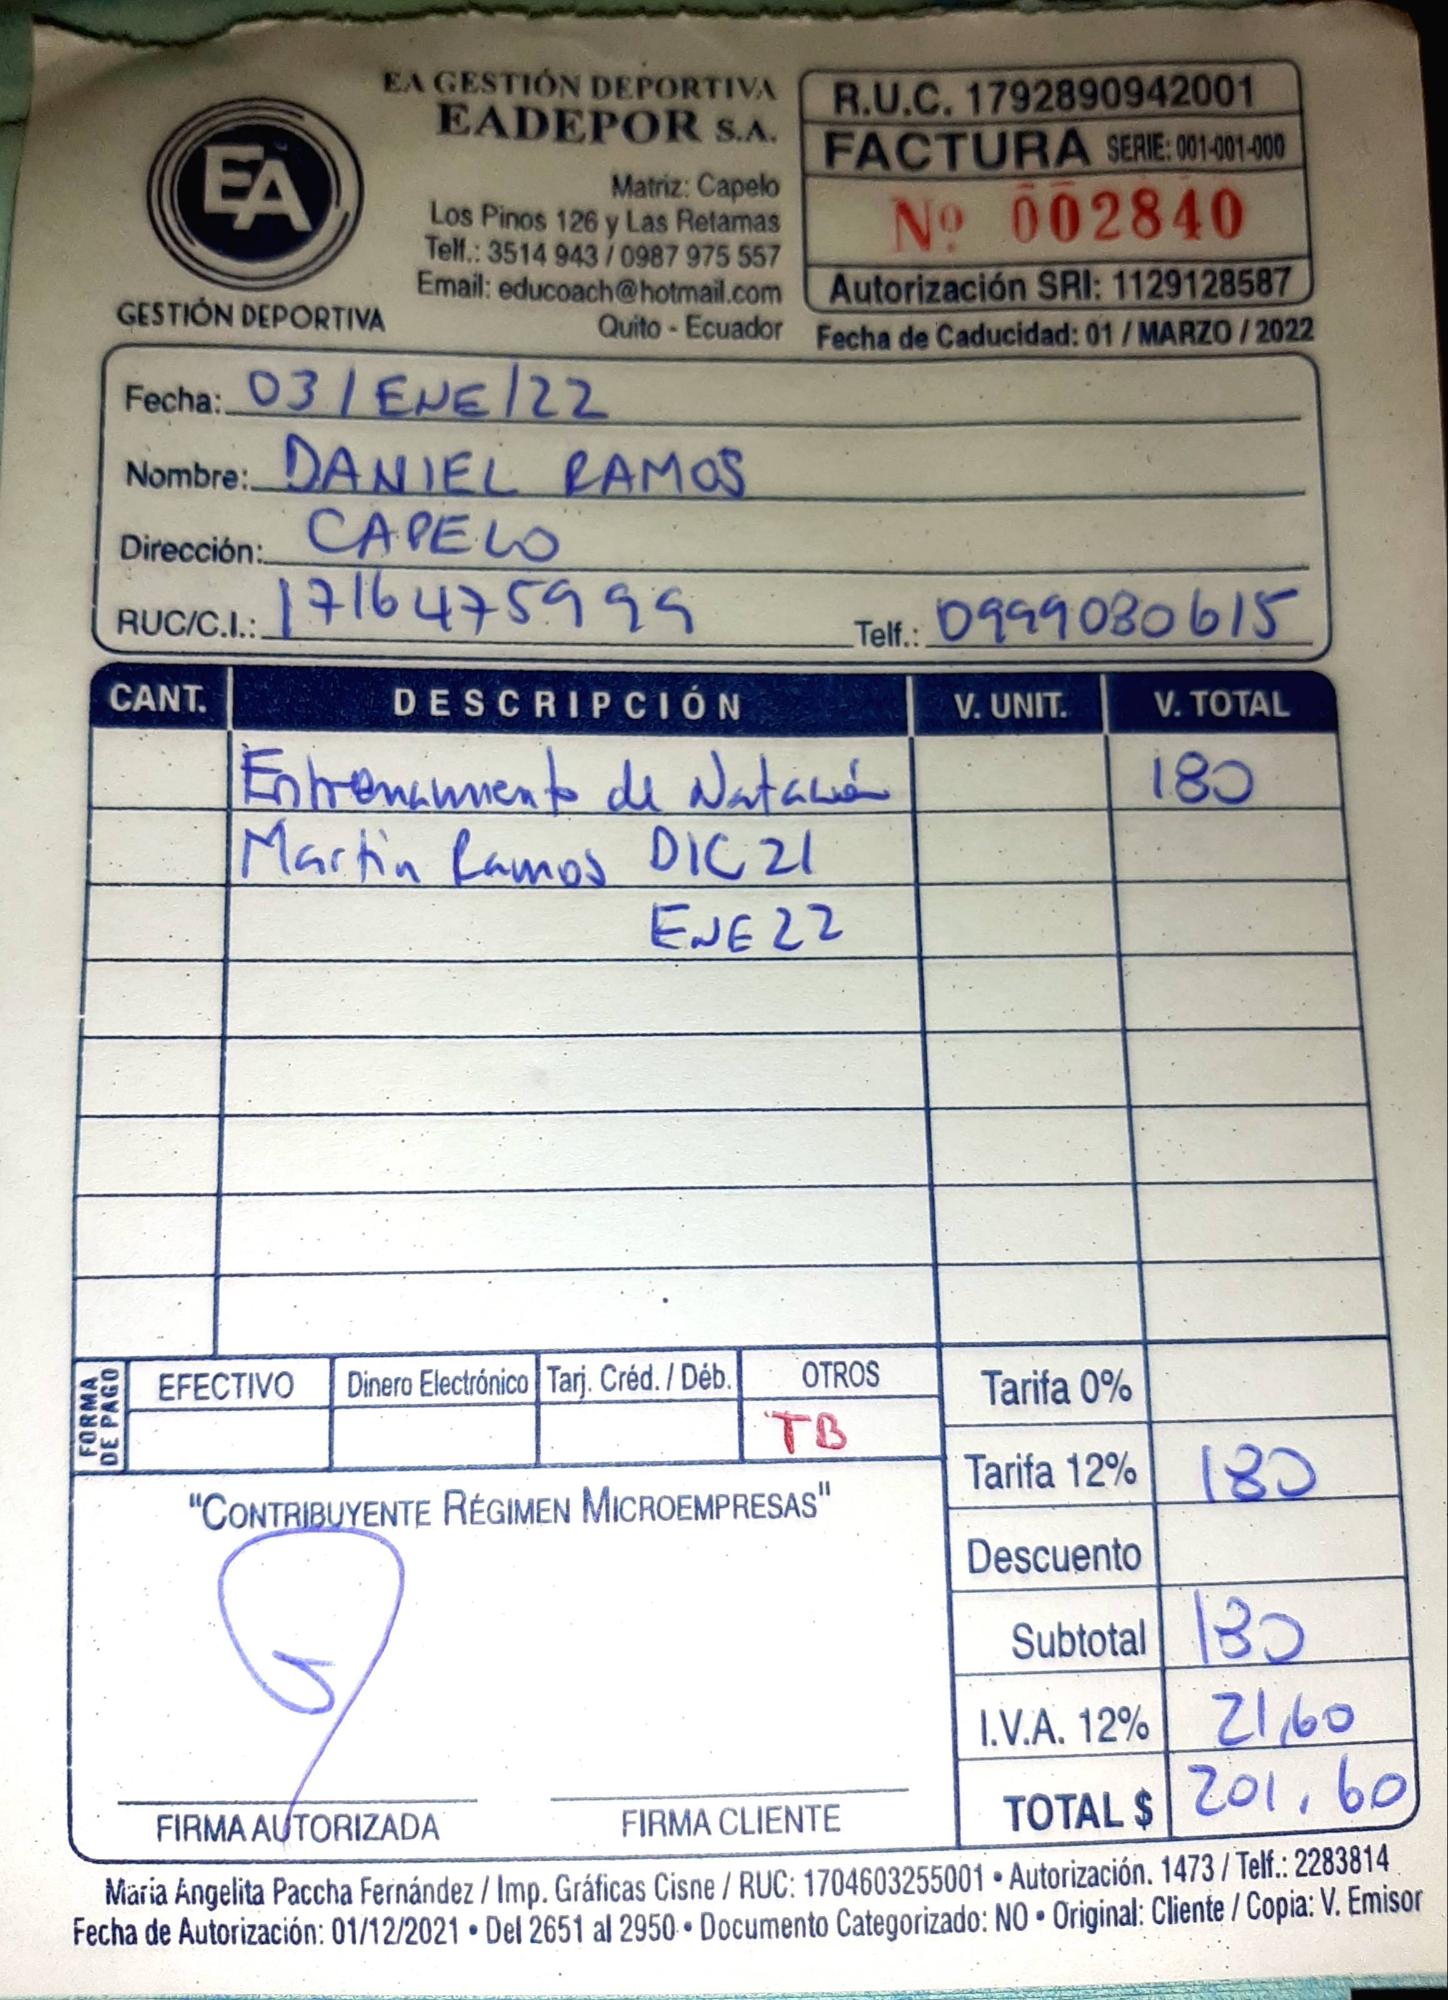 EA GESTIÓN DEPORTIVA
EADEPOR S.A.
EA
GESTIÓN DEPORTIVA
Matriz: Capelo
Los Pinos 126 y Las Retamas
Telf.: 3514 943 / 0987 975 557
Email: educoach@hotmail.com
Quito - Ecuador
R.U.C. 1792890942001
FACTURA SERIE: 001-001-000
Nº 002840
Autorización SRI: 1129128587
Fecha de Caducidad: 01 / MARZO / 2022
Fecha: 03 / ENE / 22
Nombre: DANIEL RAMOS
Dirección: CAPELO
RUC/C.I.: 1716475999 Telf.: 0999080615
CANT. DESCRIPCIÓN V. UNIT. V. TOTAL
Entrenamiento de Natación 180
Martin Ramos DIC 21
ENE 22
FORMA DE PAGO EFECTIVO Dinero Electrónico Tarj. Créd. / Déb. OTROS
TB
Tarifa 0%
Tarifa 12% 180
Descuento
Subtotal 180
I.V.A. 12% 21,60
TOTAL $ 201,60
"CONTRIBUYENTE RÉGIMEN MICROEMPRESAS"
FIRMA AUTORIZADA FIRMA CLIENTE
Maria Angelita Paccha Fernández / Imp. Gráficas Cisne / RUC: 1704603255001 • Autorización. 1473 / Telf.: 2283814
Fecha de Autorización: 01/12/2021 • Del 2651 al 2950 • Documento Categorizado: NO • Original: Cliente / Copia: V. Emisor